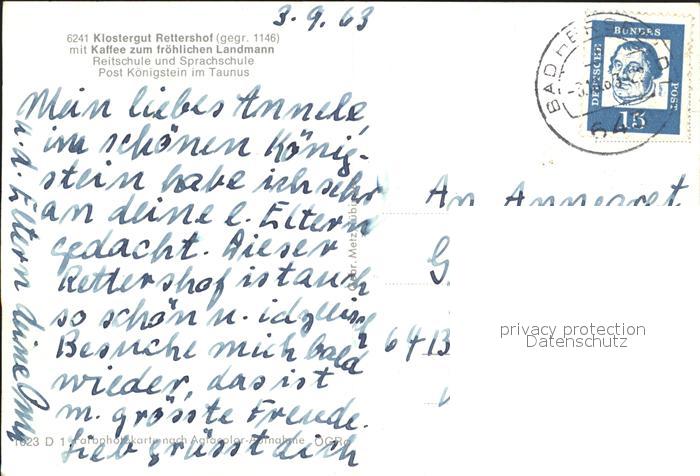 3.9.63
6241 Klostergut Rettershof (gegr. 1146)
mit Kaffee zum fröhlichen Landmann
Reitschule und Sprachschule
Post Königstein im Taunus
Mein liebes Annele,
im schönen König-
stein habe ich sehr
an deine l. Eltern
gedacht. Dieser
Rettershof ist auch
so schön u. idyllisch
Besuche mich bald
wieder, das ist
m. grösste Freude.
Lieb grüsst dich
u. d. Eltern deine
1623 D 1 Farbphotokarte nach Agfacolor-Aufnahme
An Annegret
G
6413
DEUTSCHE BUNDES POST
15
BAD HERSFELD
privacy protection
Datenschutz